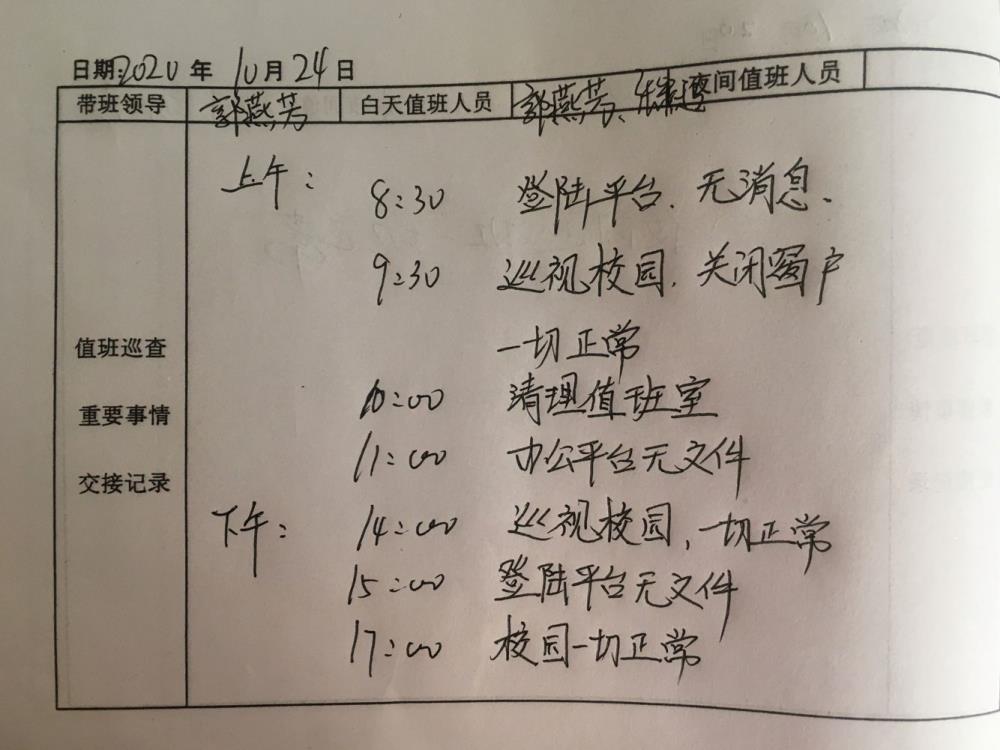 日期:2020年10月24日
带班领导 郭燕芳 白天值班人员 郭燕芳、 夜间值班人员
上午: 8:30 登陆平台.无消息.
9:30 巡视校园.关闭窗户
一切正常
值班巡查
10:00 清理值班室
重要事情
11:00 办公平台无文件
交接记录
下午: 14:00 巡视校园,一切正常
15:00 登陆平台无文件
17:00 校园一切正常